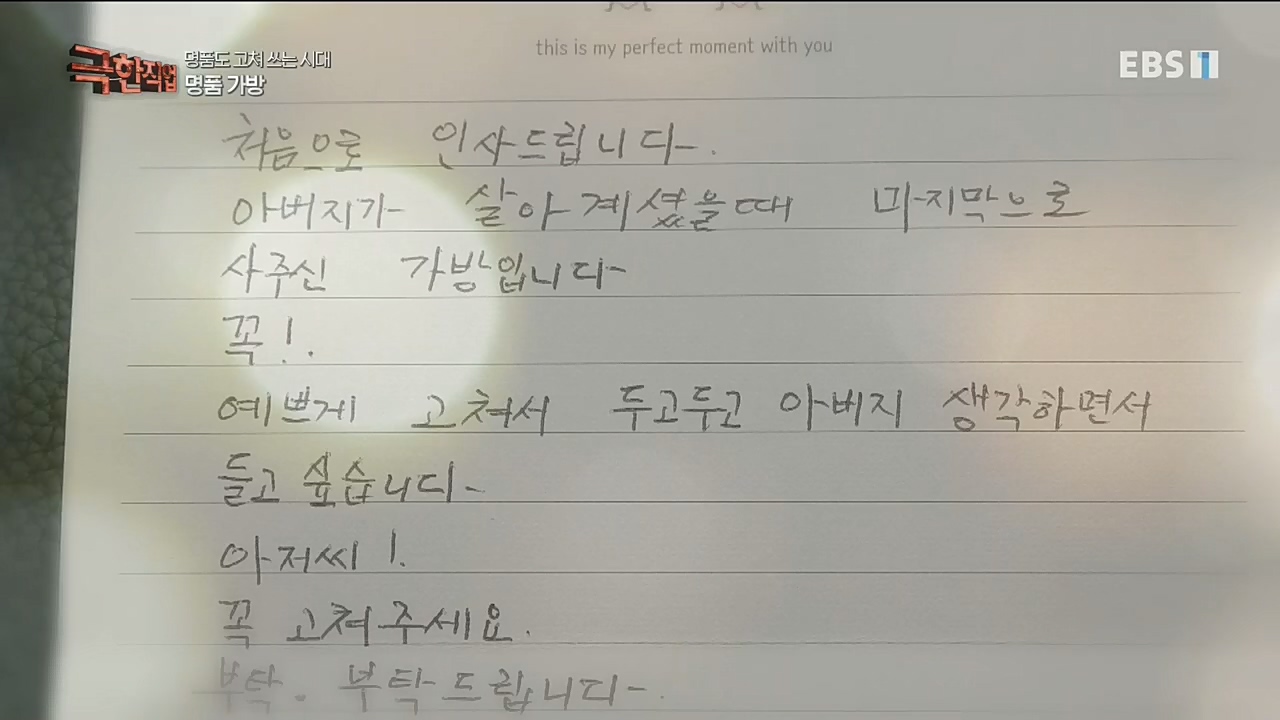 this is my perfect moment with you
극한직업
명품도 고쳐 쓰는 시대
명품 가방
EBS 1
처음으로 인사드립니다.
아버지가 살아 계셨을때 마지막으로
사주신 가방입니다
꼭!.
예쁘게 고쳐서 두고두고 아버지 생각하면서
들고 싶습니다
아저씨!.
꼭 고쳐주세요.
부탁. 부탁드립니다.